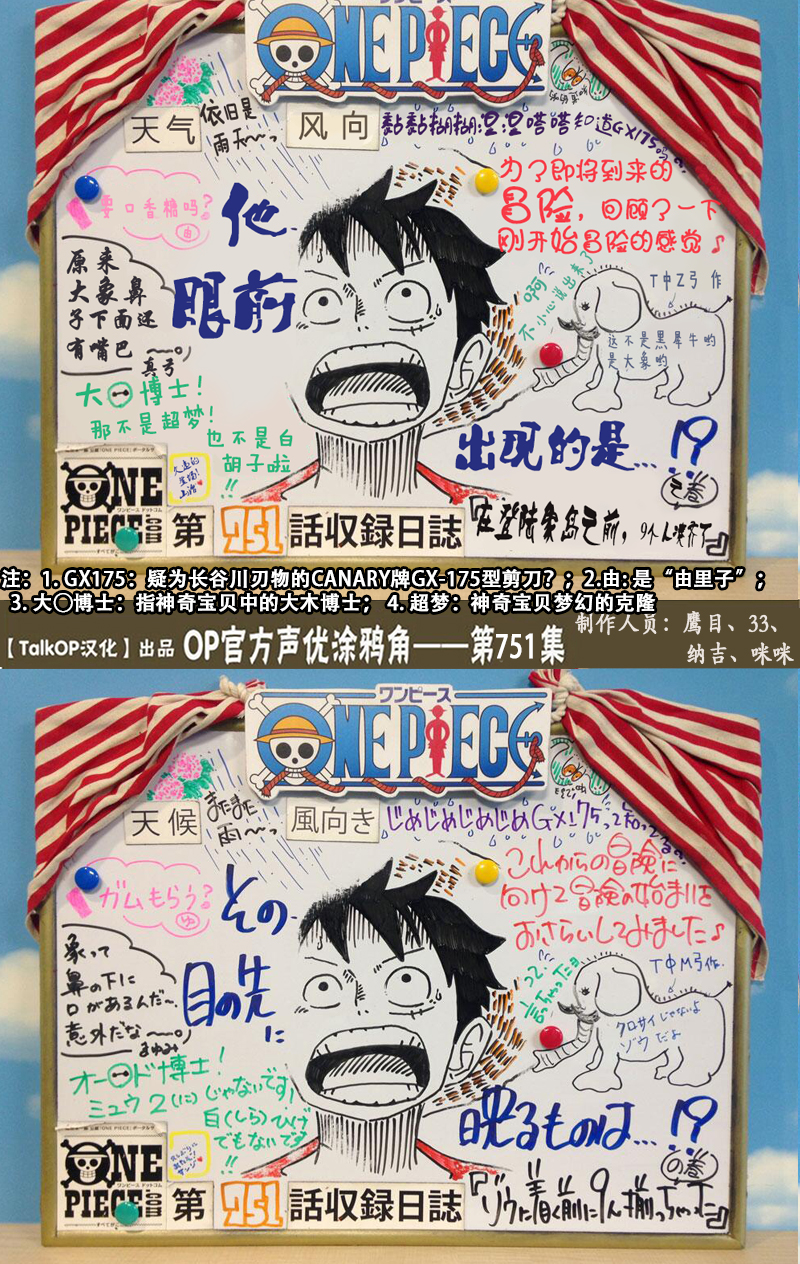 ワンピース
ONE PIECE
天气
依旧是
雨天~~っ
风向
黏黏糊糊湿湿嗒嗒知道GX175吗?
要口香糖吗?
由
他
眼前
为了即将到来的
冒险,回顾了一下
刚开始冒险的感觉♪
原来
大象鼻
子下面还
有嘴巴
真弓
啊
不小心说出来了
TФZ弓 作
这不是黑犀牛哟
是大象哟
大〇博士!
那不是超梦!
也不是白
胡子啦
!!
出现的是…!?
之卷
ONE
PIECE.com
第751話収録日誌
『在登陆象岛之前,9个人凑齐了』
注:1. GX175:疑为长谷川刃物的CANARY牌GX-175型剪刀?;2.由:是“由里子”;
3. 大〇博士:指神奇宝贝中的大木博士; 4. 超梦:神奇宝贝梦幻的克隆
【TalkOP汉化】出品 OP官方声优涂鸦角——第751集
制作人员:鹰目、33、
纳吉、咪咪
ワンピース
ONE PIECE
天候
またまた
雨~~っ
風向き
じめじめじめじめGX175って知ってる?
ガムもらう?
ゆ
その
目の先に
これからの冒険に
向けて冒険の始まりを
おさらいしてみました♪
象って
鼻の下に
口があるんだ~
意外だな~~。
まゆみ
TФM弓作.
クロサイじゃないよ
ゾウだよ
オー〇ド博士!
ミュウ2(に)じゃないです!
白(しら)ひげ
でもないです
!!
映るものは…!?
の巻
ONE
PIECE.com
第751話収録日誌
『ゾウに着く前に9人揃っちゃった』